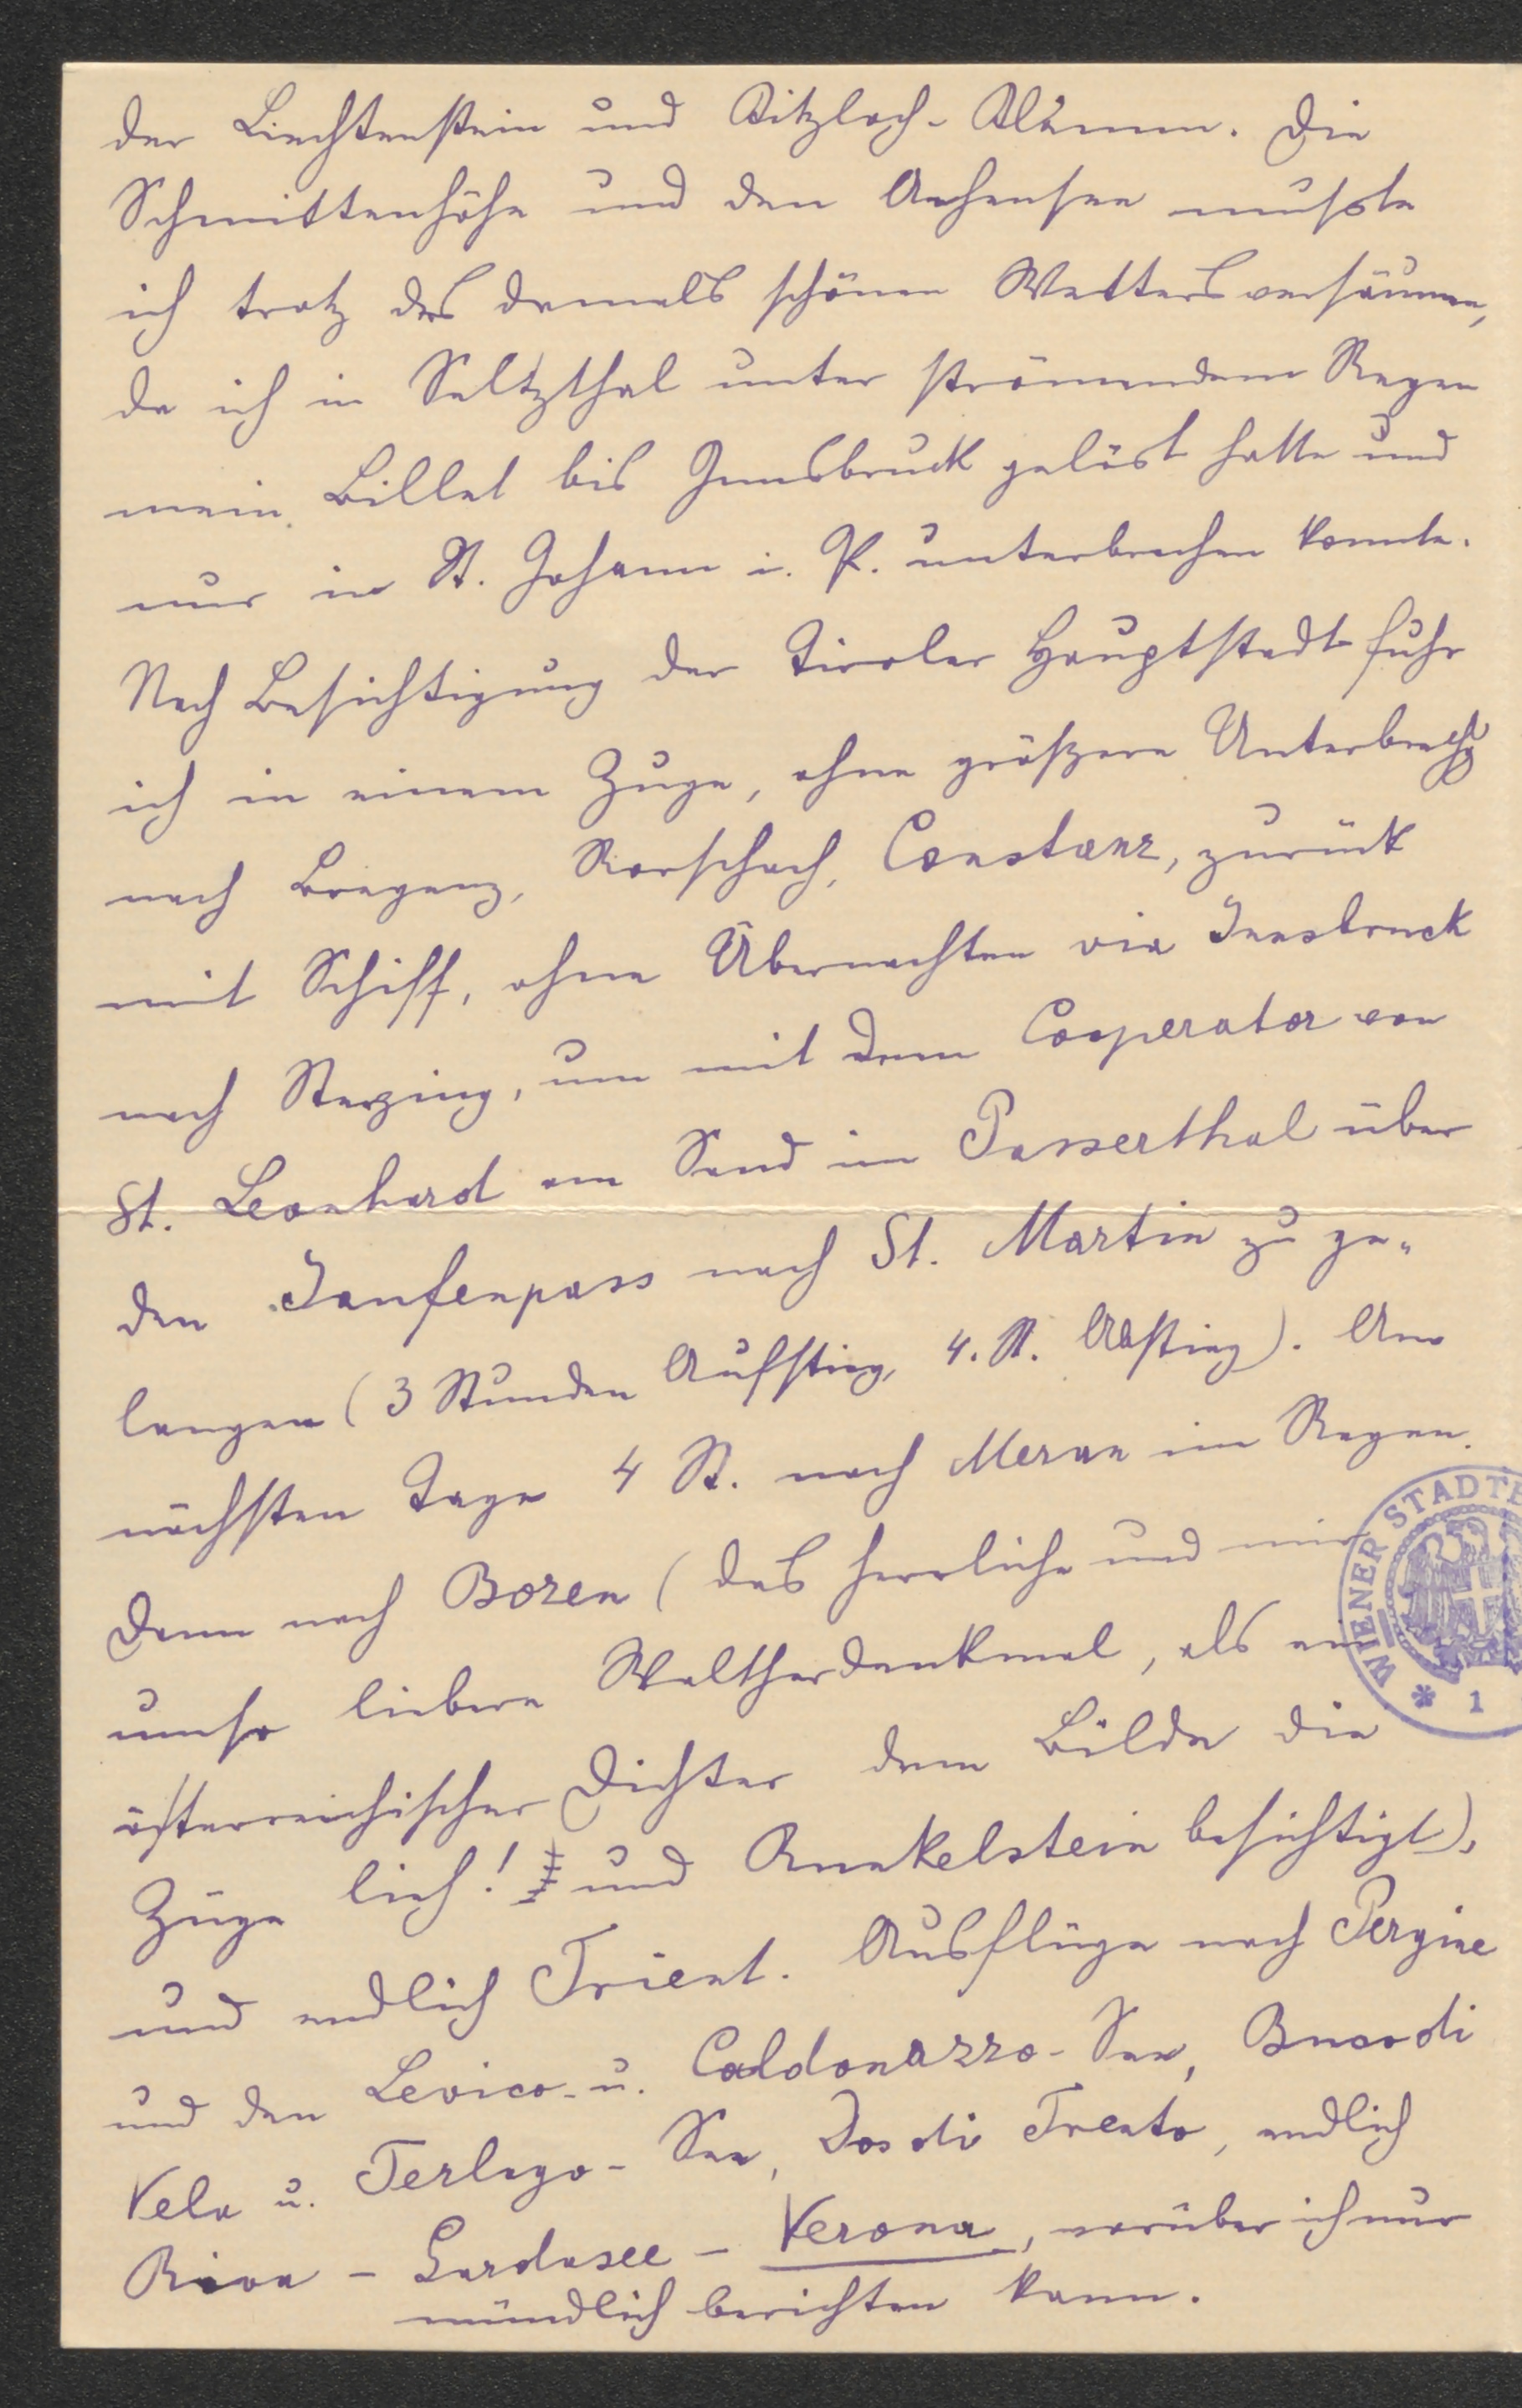 der Liechtenstein und Kitzloch-Klamm. Die
Schmittenhöhe und den Achensee mußte
ich trotz des damals schönen Wetters versäumen,
da ich in Seltzthal unter strömendem Regen
mein Billet bis Innsbruck gelöst hatte und
nur in St. Johann i. P. unterbrechen konnte.
Nach Besichtigung der Tiroler Hauptstadt fuhr
ich in einem Zuge, ohne größere Unterbrechg
nach Bregenz, Rorschach, Constanz, zurück
mit Schiff, ohne Übernachten via Innsbruck
nach Sterzing, um mit dem Cooperator von
St. Leonhard am Sand im Passerthal über
den Jaufenpass nach St. Martin zu ge-
langen (3 Stunden Aufstieg, 4. St. Abstieg). Am
nächsten Tage 4 St. nach Meran im Regen.
Dann nach Bozen (das herrliche und mir
umso liebere Waltherdenkmal, als ein
österreichischer Dichter dem Bilde die
Züge lieh! und Runkelstein besichtigt),
und endlich Trient. Ausflüge nach Pergine
und den Levico- u. Caldonazzo-See, Buco di
Vela u. Terlago-See, Dos di Trento, endlich
Riva - Gardasee - Verona, worüber ich nur
mündlich berichten kann.
WIENER STADT
* 1